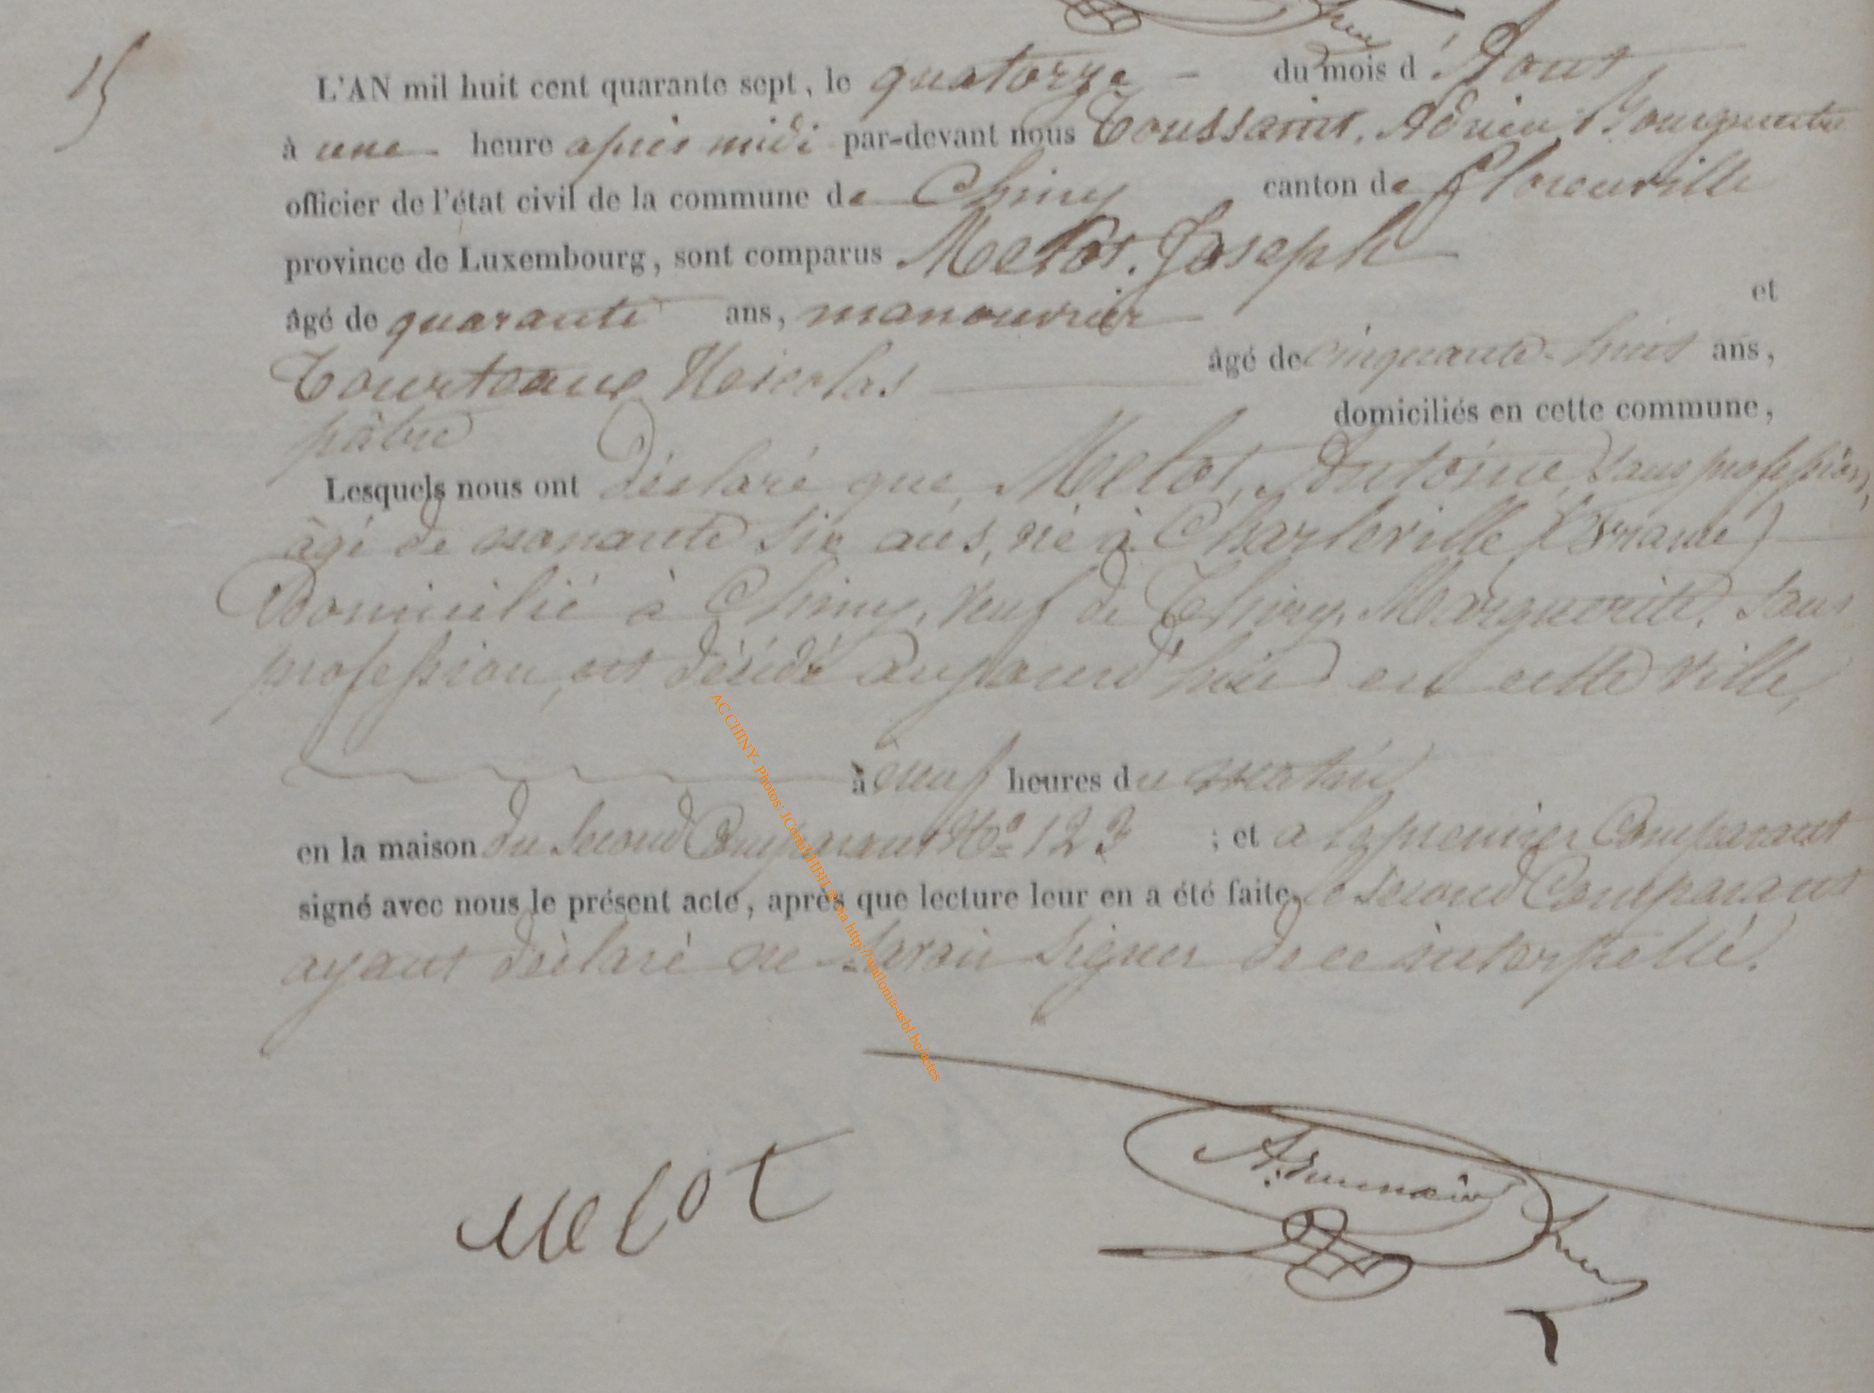 15
L'AN mil huit cent quarante sept, le quatorze du mois d'Aout
à une heure après midi par-devant nous Toussaint, Adrien
officier de l'état civil de la commune de Chiny canton de Florenville
province de Luxembourg, sont comparus Melot, Joseph
âgé de quarante ans, manouvrier et
Tourteaux Nicolas âgé de cinquante-huit ans,
pâtre domiciliés en cette commune,
Lesquels nous ont déclaré que Melot, Antoine, sans profession,
âgé de nonante six ans, né à Charleville (France)
Domicilié à Chiny, veuf de Thiry, Marguerite, sans
profession, est décédé aujourd'hui en cette ville,
à neuf heures du matin
en la maison du second Comparant No 123 ; et a le premier Comparant
signé avec nous le présent acte, après que lecture leur en a été faite, le second Comparant
ayant déclaré ne savoir signer de ce interpellé.
Melot
AC CHINY- Photos: